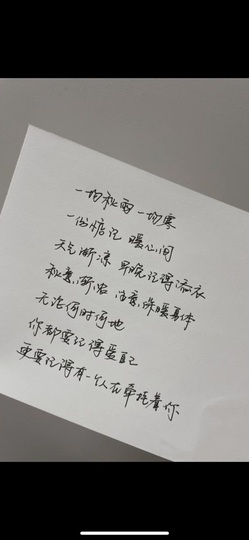 一场秋雨一场寒
一份惦记 暖心间
天气渐凉 早晚记得添衣
秋意渐浓 注意保暖身体
无论何时何地
你都要记得爱自己
更要记得有一个人在牵挂着你